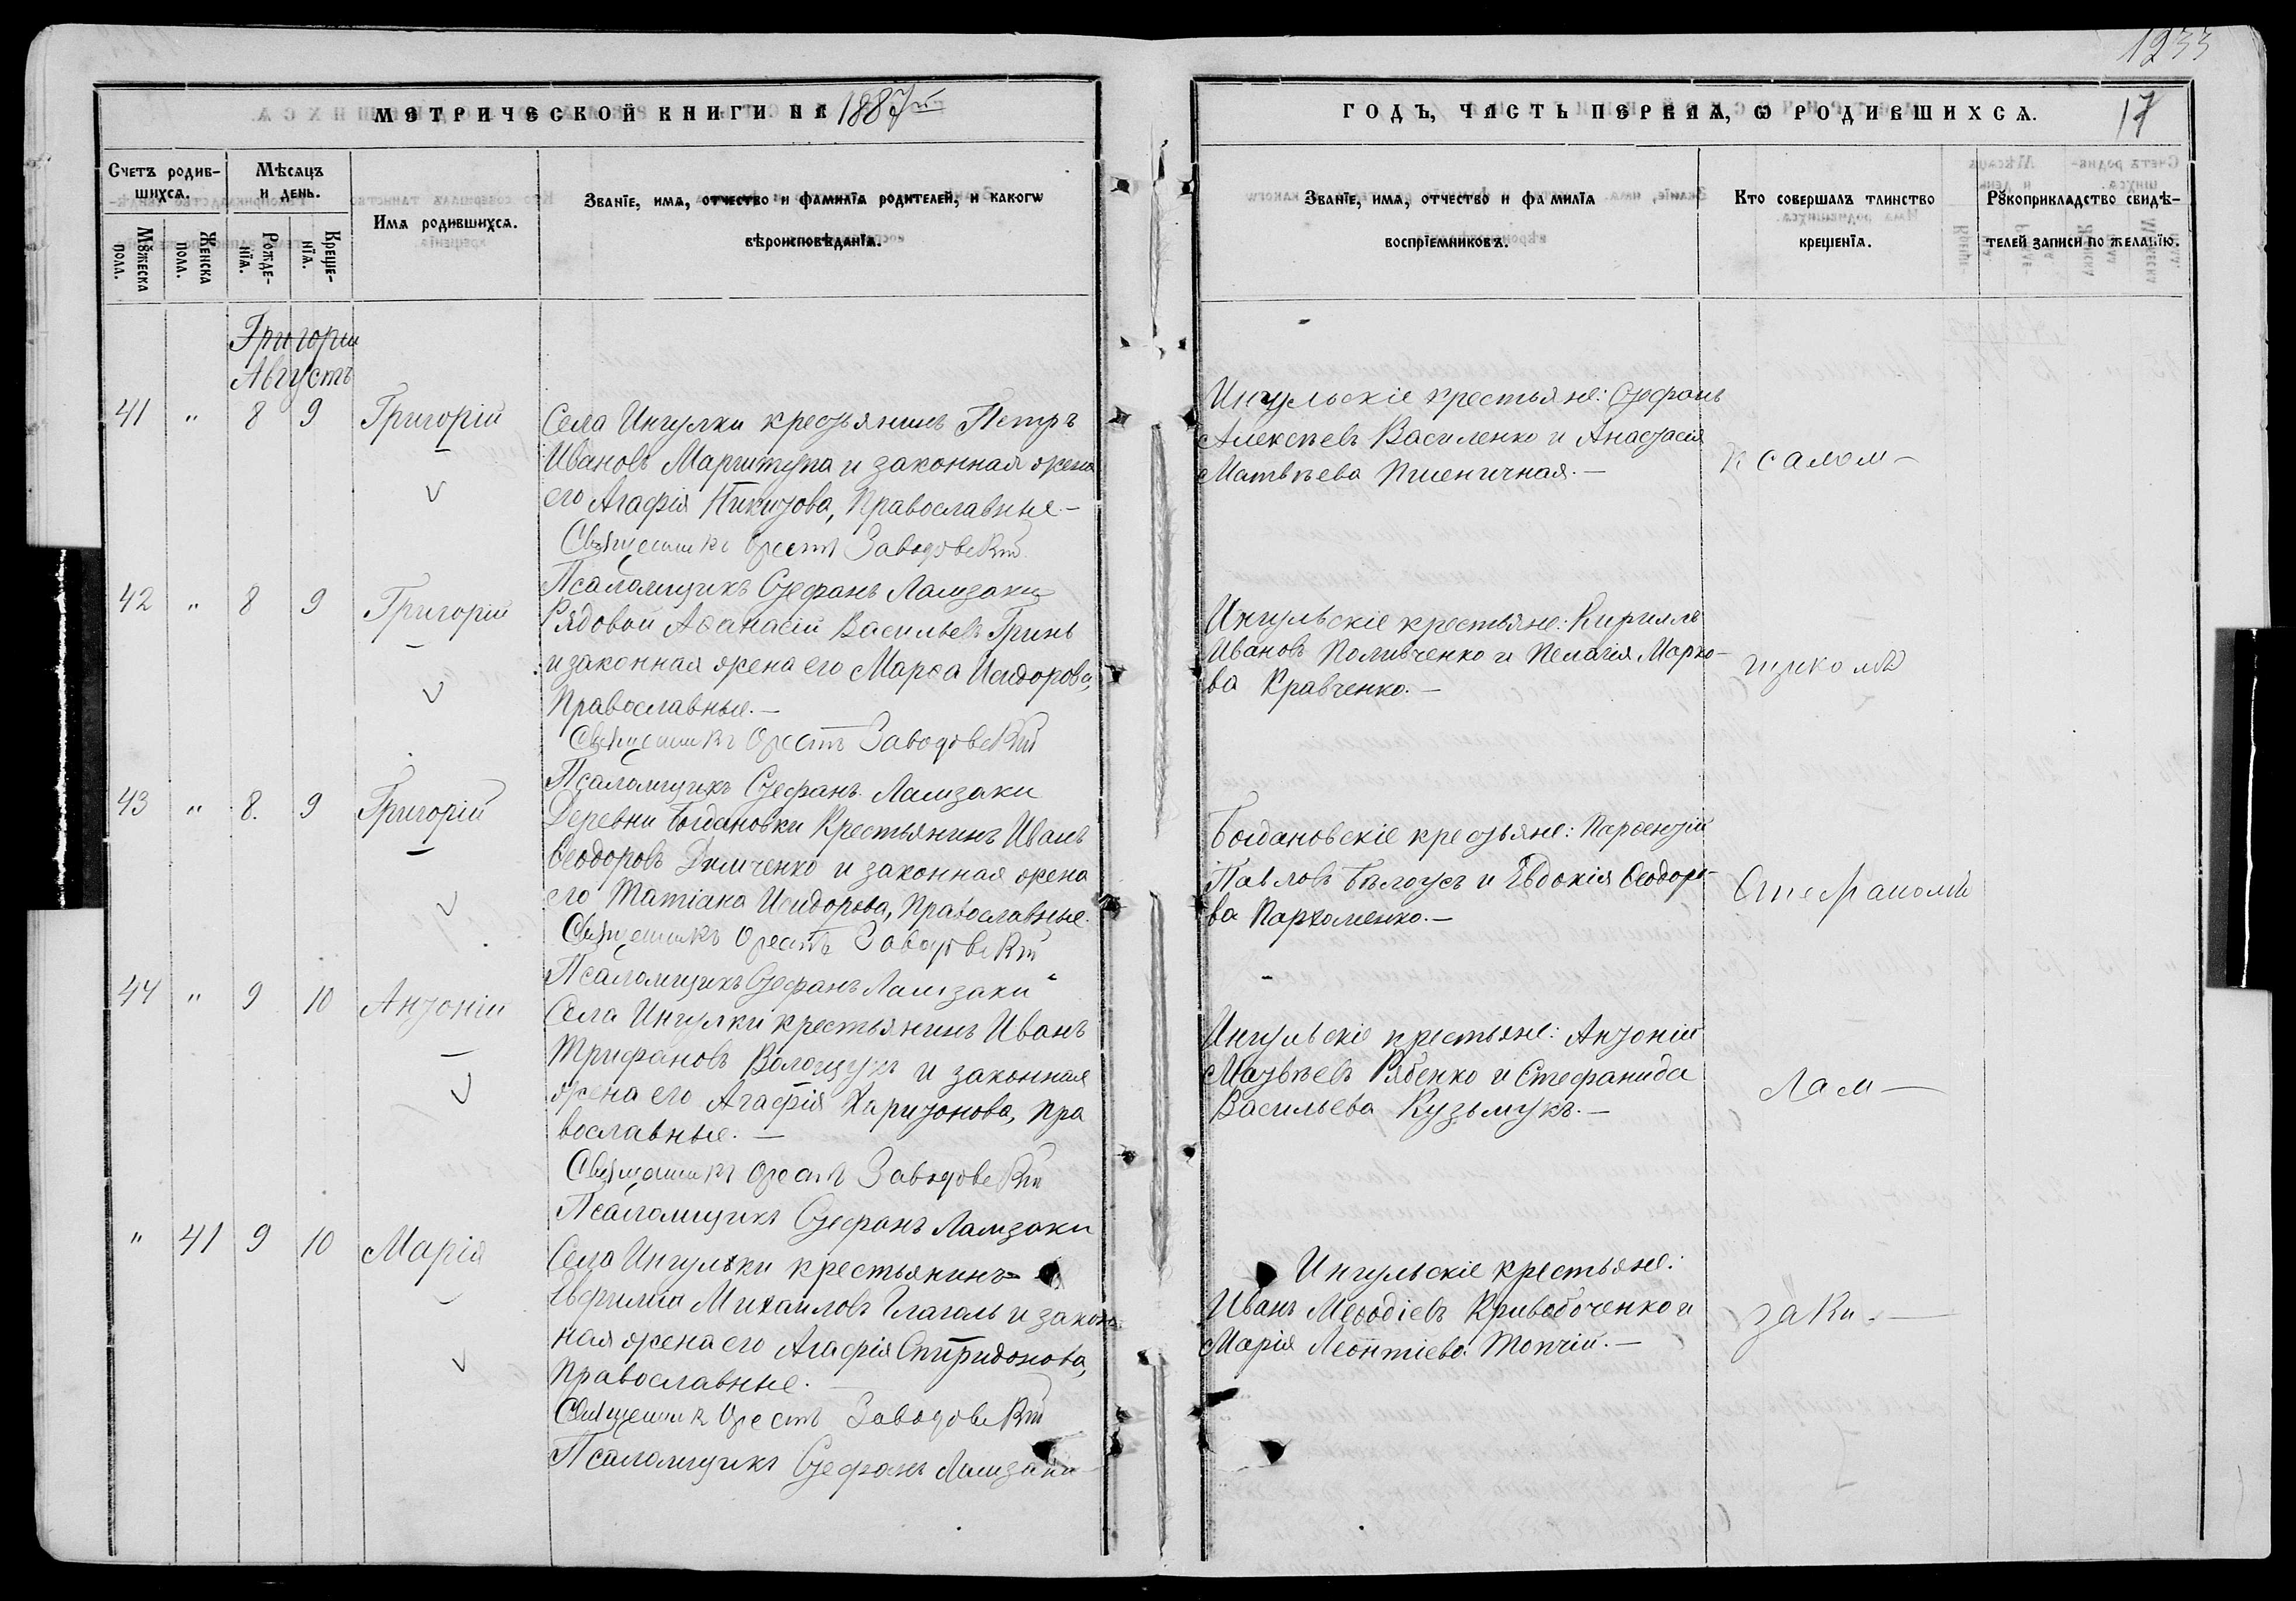 1233
МЕТРИЧЕСКОЙ КНИГИ НА 1887й
ГОДЪ, ЧАСТЬ ПЕРВАЯ, Ѡ РОДИВШИХСЯ.
17
Счетъ родив-
шихся.
Мѣсяцъ
и день.
Имя родившихся.
Званїе, имя, отчество и фамилїя родителей, и какогѡ
вѣроисповѣданїя.
Мꙋжеска
пола.
Женска
пола.
Рожде-
нїя.
Креще-
нїя.
Званїе, имя, отчество и фамилїя
воспрїемниковъ.
Кто совершалъ таинство
крещенїя.
Рꙋкоприкладство свидѣ-
телей записи по желанїю.
Григорій
Августъ
41 " 8 9 Григорій
Села Ингулки крестьянинъ Петръ
Ивановъ и законная жена
его Агафія Никитова, Православные.-
Священникъ Орестъ Заводовскій
Псаломщикъ Стефанъ Ламзаки
Ингульскіе крестьяне: Стефанъ
Алексѣевъ Василенко и Анастасія
Матвѣева Пшеничная.-
42 " 8 9 Григорій
Рядовой Аѳанасій Васильевъ Гринь
и законная жена его Марѳа Исидорова,
Православные.-
Священникъ Орестъ Заводовскій
Псаломщикъ Стефанъ Ламзаки
Ингульскіе крестьяне: Кириллъ
Ивановъ Поливченко и Пелагія Марко-
ва Кравченко.-
щикомъ
43 " 8. 9 Григорій
Деревни Богдановки Крестьянинъ Иванъ
Ѳеодоровъ и законная жена
его Татіана Исидорова, Православные.
Священникъ Орестъ Заводовскій
Псаломщикъ Стефанъ Ламзаки
Богдановскіе крестьяне: Парѳентій
Павловъ Бѣлоусъ и Евдокія Ѳеодоро-
ва Пархоменко.-
Стефаномъ
44 " 9 10 Антоній
Села Ингулки крестьянинъ Иванъ
Трифановъ Волощукъ и законная
жена его Агафія Харитонова, Пра
вославные.-
Священникъ Орестъ Заводовскій
Псаломщикъ Стефанъ Ламзаки
Ингульскіе крестьяне: Антоній
Матвѣевъ Рябенко и Стефанида
Васильева Кузьмукъ.-
Лам-
" 41 9 10 Марія
Села Ингулки крестьянинъ
Евфимій Михаиловъ Глаголь и закон-
ная жена его Агафія Спиридонова,
Православные.
Священник Орестъ Заводовскій
Псаломщикъ Стефанъ Ламзаки
Ингульскіе крестьяне:
Иванъ Меѳодіевъ Кривобоченко и
Марія Леонтіева Топчій.-
заки.-